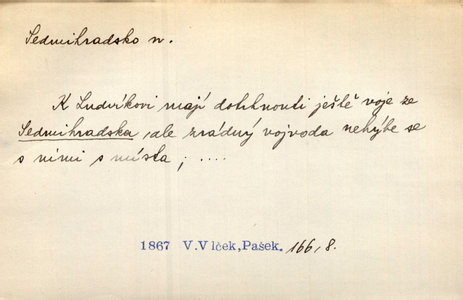 Sedmihradsko n.
K Ludvíkovi mají dotrhnouti ještě voje ze
Sedmihradska, ale zrádný vojvoda nehýbe se
s nimi s místa; ....
1867 V.Vlček, Pašek. 166,8.